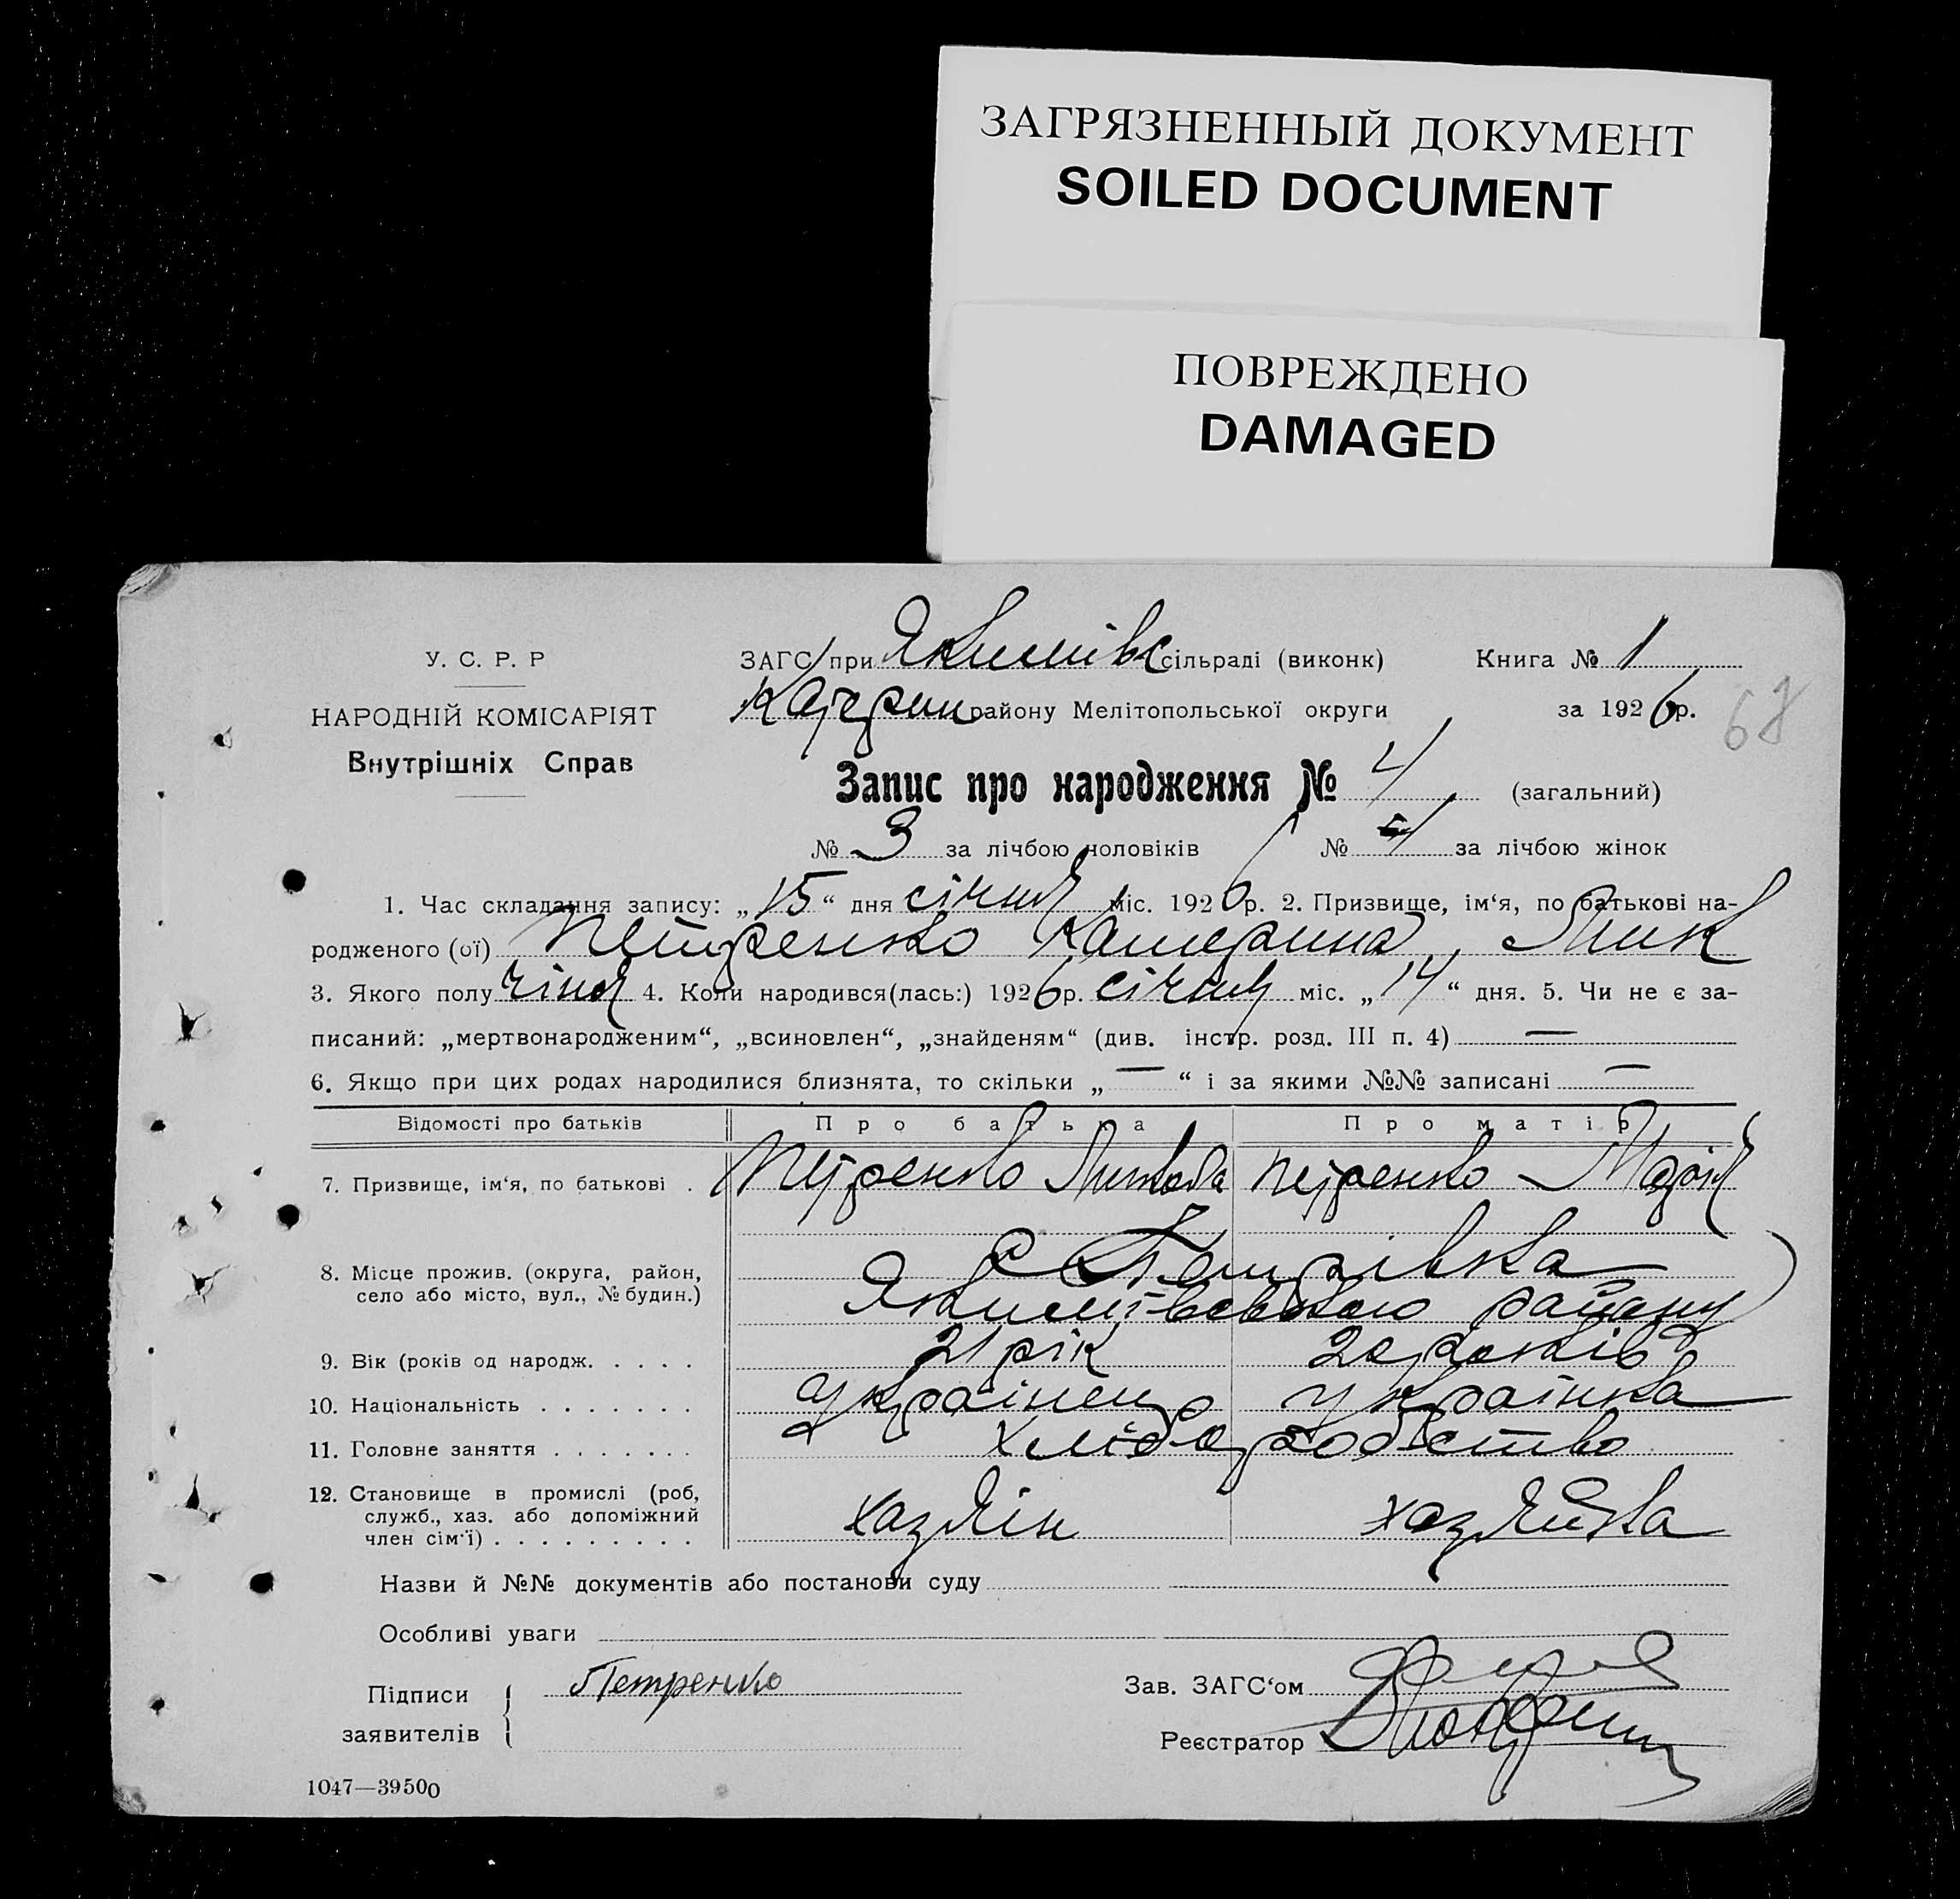 ЗАГРЯЗНЕННЫЙ ДОКУМЕНТ
SOILED DOCUMENT
ПОВРЕЖДЕНО
DAMAGED
У. С. Р. Р
НАРОДНІЙ КОМІСАРІЯТ
Внутрішніх Справ
ЗАГС при Якимівс сільраді (виконк) Книга № 1
району Мелітопольської округи за 1926 р.
67
Запис про народження № 4 (загальний)
№ 3 за лічбою чоловіків № за лічбою жінок
1. Час складання запису: „15“ дня січня міс. 1926 р. 2. Призвище, ім‘я, по батькові на-
родженого (ої) Петренко Катерина Мик
3. Якого полу жіноч 4. Коли народився(лась:) 1926 р. січня міс. „14“ дня. 5. Чи не є за-
писаний: „мертвонародженим“, „всиновлен“, „знайденям“ (див. інстр. розд. III п. 4) —
6. Якщо при цих родах народилися близнята, то скільки „—“ і за якими №№ записані —
Відомості про батьків Про батька Про матір
7. Призвище, ім‘я, по батькові . Петренко Микола Петренко Марія
8. Місце прожив. (округа, район, с Петрівка
село або місто, вул., № будин.) Якимівського району
9. Вік (років од народж. . . . . 21 рік 20 років
10. Національність . . . . . . . українець українка
11. Головне заняття . . . . . . . хліборобство
12. Становище в промислі (роб, служб., хаз. або допоміжний член сім‘ї) . . . . . . . . . хазяїн хазяйка
Назви й №№ документів або постанови суду
Особливі уваги
Підписи Петренко Зав. ЗАГС‘ом
заявителів Реєстратор
1047—39500